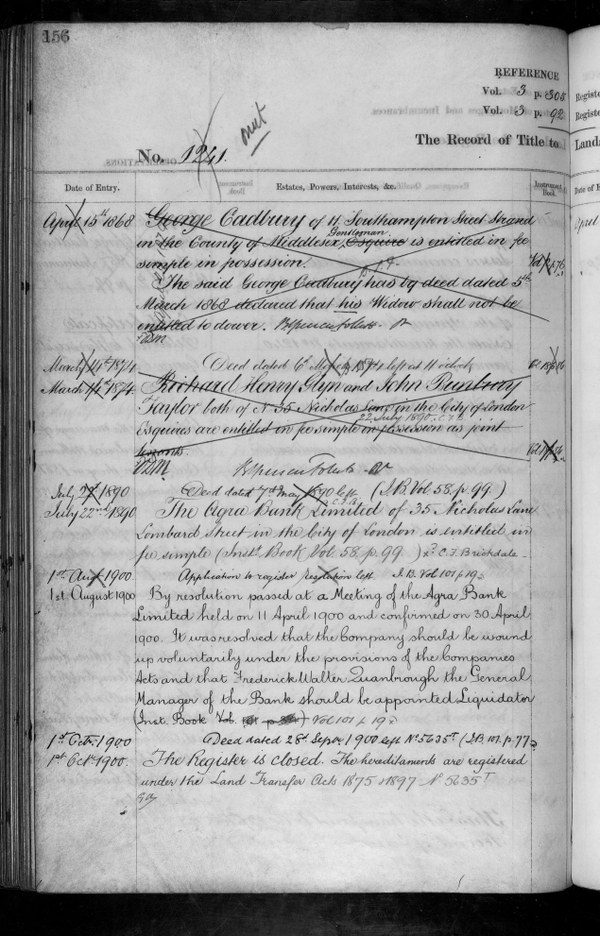 156
REFERENCE
Vol. 3 p. 305
Vol. 3 p. 92
No. 1241.
The Record of Title to
Registe
Registe
Landa
Date of Entry.
Estates, Powers, Interests, &c.
Instrument Book.
Date of E
April 15th 1868
George Cadbury of 11 Southampton Street Strand
Gentleman
in the County of Middlesex, Esquire is entitled in fee
simple in possession.
The said George Cadbury has by deed dated 5th
March 1868 declared that his Widow shall not be
entitled to dower.
April
March 14th 1874
Deed dated 6th March 1874 left at 11 o'clock
March 14th 1874
Richard Henry Glyn and John
Taylor both of No 35 Nicholas Lane in the City of London
22 July 1890
Esquires are entitled in fee simple in possession as joint
tenants.
July 22 1890
Deed dated 7th May 1890 left (I.B. Vol. 58. p. 99.)
July 22nd 1890
The Agra Bank Limited of 35 Nicholas Lane
Lombard Street in the City of London is entitled in
fee simple (Inst. Book Vol. 58. p. 99.) C.F. Brickdale
1st Aug 1900
Application to register resolution left. I.B. Vol 101 p 19
1st August 1900
By resolution passed at a Meeting of the Agra Bank
Limited held on 11 April 1900 and confirmed on 30 April
1900. It was resolved that the Company should be wound
up voluntarily under the provisions of the Companies
Acts and that Frederick Walter Quanbrough the General
Manager of the Bank should be appointed Liquidator
(Inst. Book Vol. Vol 101 p 19
1st Octr. 1900
Deed dated 28th Septr. 1900 left No 5635T (I.B. 101. p. 77
1st Octr 1900.
The Register is closed. The hereditaments are registered
under the Land Transfer Acts 1875 & 1897 No 5635T